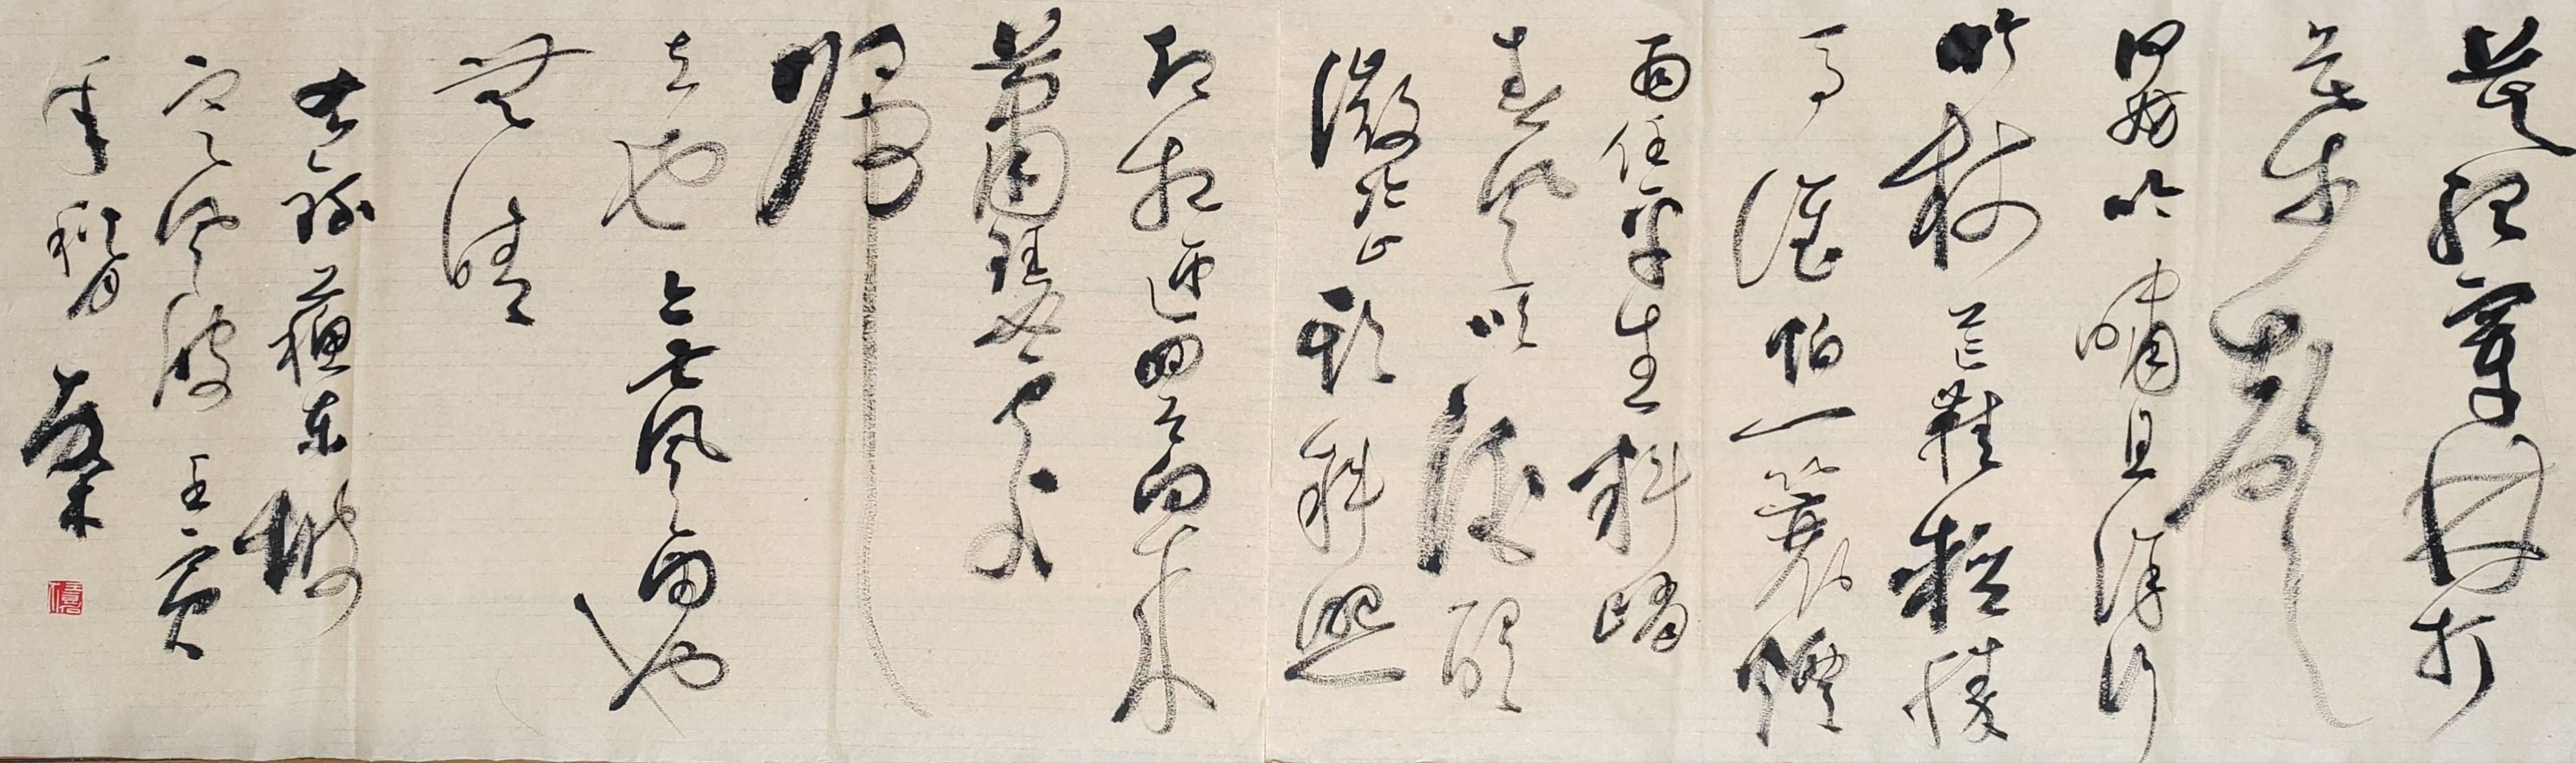 莫聽穿林打
葉聲
何妨吟嘯且徐行
竹杖芒鞋輕勝
馬誰怕一蓑煙
雨任平生料峭
春風吹酒醒
微冷山頭斜照
却相迎回首向来
蕭瑟處
歸
去也无風雨也
無晴
右錄蘇東坡
定風波 壬寅
年